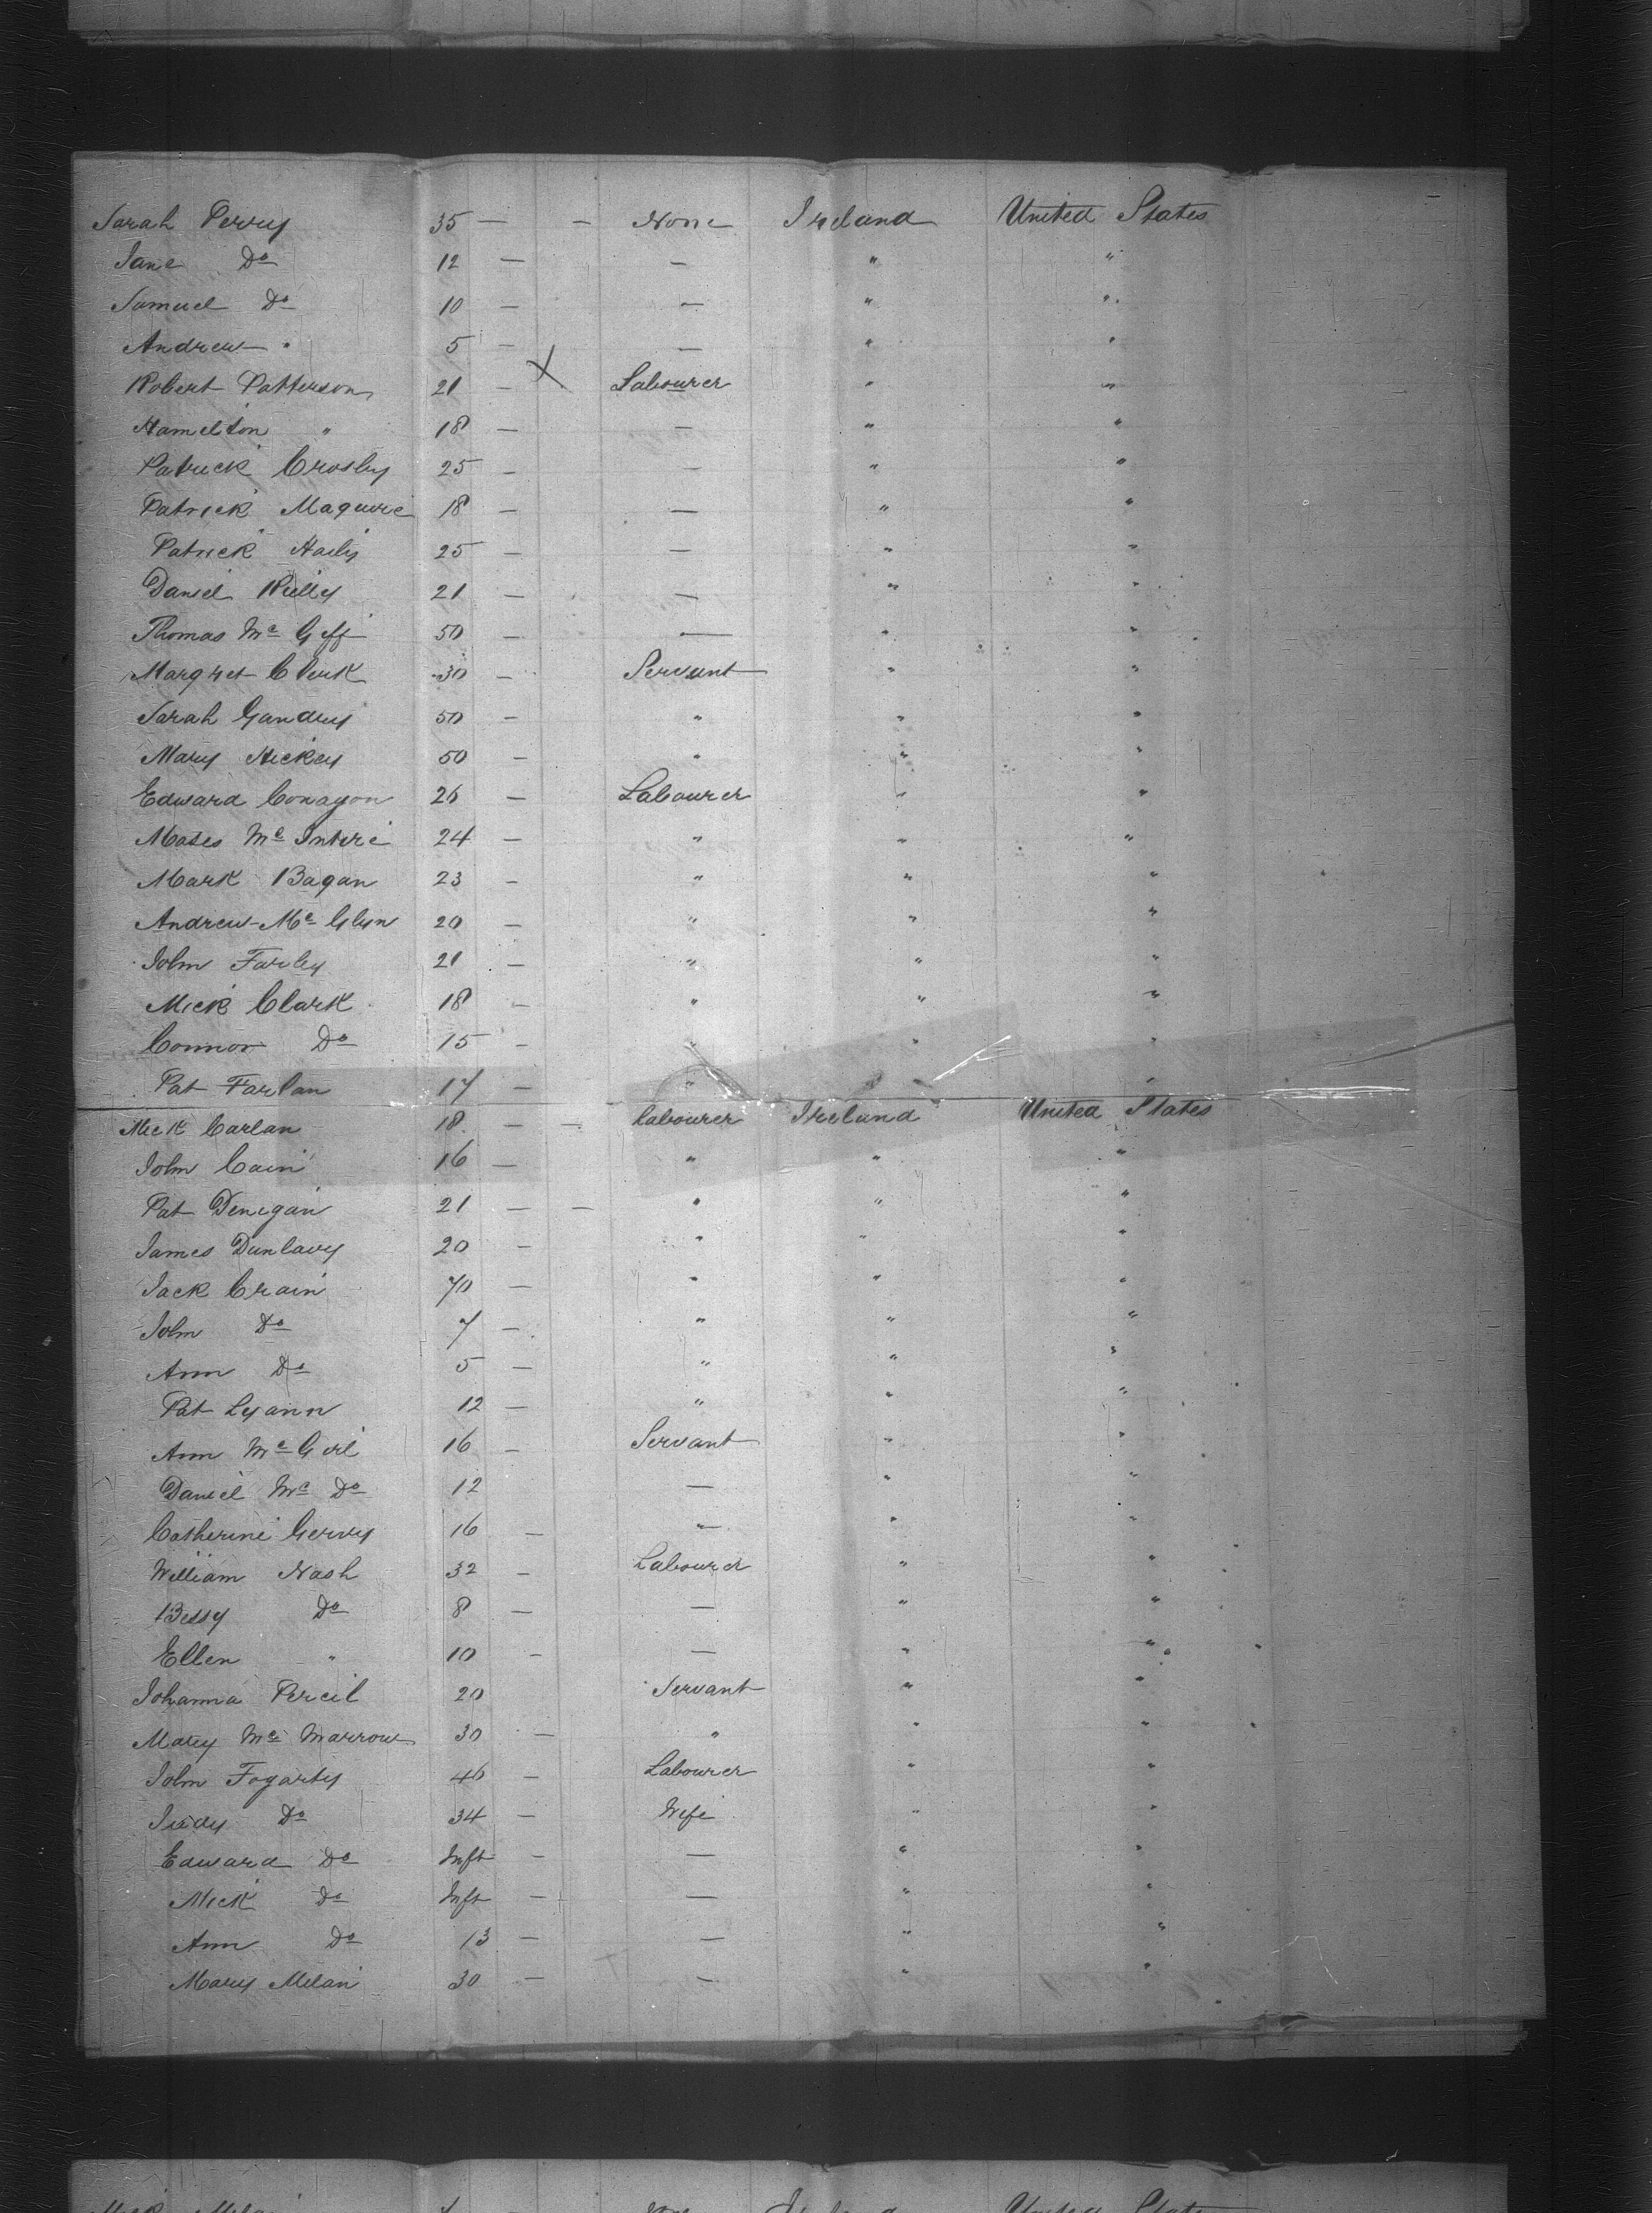 Sarah Perry 35 — — None Ireland United States
Jane Do 12 — — " "
Samuel Do 10 — — " "
Andrew " 5 — — " "
Robert Patterson 21 — X Labourer " "
Hamelton " 18 — — " "
Patrick Crosby 25 — — " "
Patrick Maguire 18 — — " "
Patrick Haily 25 — — " "
Daniel Rielly 21 — — " "
Thomas Mc Goff 50 — — " "
Margret Clerk 30 — Servant " "
Sarah Gandry 50 — " " "
Mary Hickey 50 — " " "
Edward Conagon 26 — Labourer " "
Mc Intire 24 — " " "
Mark Bagan 23 — " " "
Andrew Mc Glyn 20 — " " "
John Farley 21 — " " "
Mick Clark 18 — " " "
Connor Do 15 — " " "
Pat Farlan 17 — " " "
Mick Carlan 18 — — Labourer Ireland United States
John Cain 16 — " " "
Pat Denigan 21 — — " " "
James Dunlavy 20 — " " "
Jack Crain 70 — " " "
John Do 7 — " " "
Ann Do 5 — " " "
Pat Lyann 12 — " " "
Ann Mc Girl 16 — Servant " "
Daniel Mc Do 12 — " "
Catherine Gervy 16 — " " "
William Nash 32 — Labourer " "
Bessy Do 8 — — " "
Ellen " 10 — — " "
Johanna Percil 20 Servant " "
Mary Mc Marrow 30 — " " "
John Fogarty 46 — Labourer " "
Judy Do 34 — Wife " "
Edward Do Inft — — " "
Mick Do Inft — — " "
Ann Do 13 — — " "
Mary Milan 30 — — " "
Ireland United States